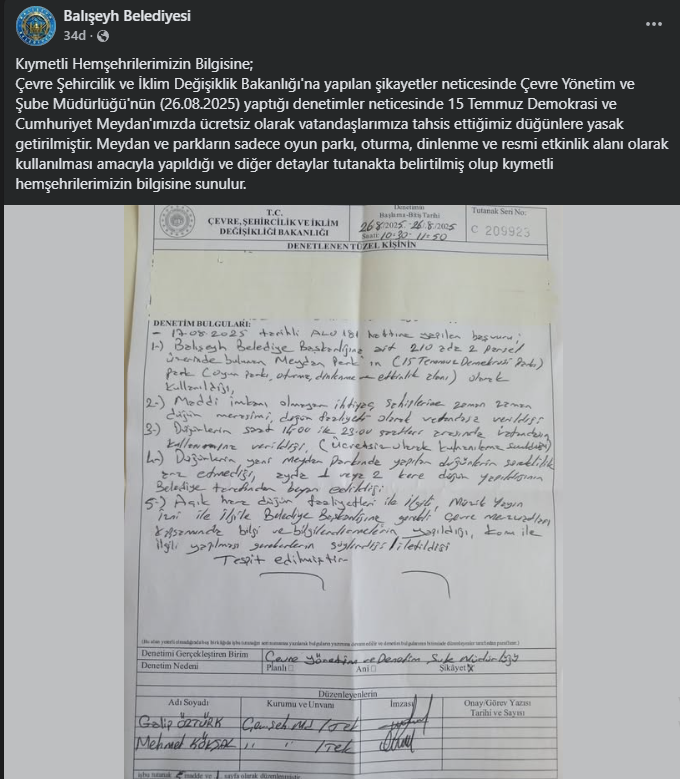 Balışeyh Belediyesi
34d ·
Kıymetli Hemşehrilerimizin Bilgisine;
Çevre Şehircilik ve İklim Değişiklik Bakanlığı'na yapılan şikayetler neticesinde Çevre Yönetim ve
Şube Müdürlüğü'nün (26.08.2025) yaptığı denetimler neticesinde 15 Temmuz Demokrasi ve
Cumhuriyet Meydan'ımızda ücretsiz olarak vatandaşlarımıza tahsis ettiğimiz düğünlere yasak
getirilmiştir. Meydan ve parkların sadece oyun parkı, oturma, dinlenme ve resmi etkinlik alanı olarak
kullanılması amacıyla yapıldığı ve diğer detaylar tutanakta belirtilmiş olup kıymetli
hemşehrilerimizin bilgisine sunulur.
T.C.
ÇEVRE, ŞEHİRCİLİK VE İKLİM
DEĞİŞİKLİĞİ BAKANLIĞI
Denetimin
Başlama-Bitiş Tarihi
26.8/2025-26.8/2025
Saati 10:30-11:50
Tutanak Seri No:
C 209923
DENETLENEN TÜZEL KİŞİNİN
DENETİM BULGULARI:
- 17.08.2025 tarihli ALO 181 hattına yapılan başvuru;
1-) Balışeyh Belediye Başkanlığına ait 210 ada 2 parsel
üzerinde bulunan Meydan Park'ın (15 Temmuz Demokrasi Parkı)
park (oyun parkı, oturma, dinlenme ve etkinlik alanı) olarak
kullanıldığı,
2-) Maddi imkanı olmayan ihtiyaç sahiplerine zaman zaman
düğün merasimi, olarak verildiği
3-) Düğünlerin saat ile 23:00 saatleri arasında vatandaşın
kullanımına verildiği, (Ücretsiz olarak
4-) Düğünlerin yani Meydan Parkında yapılan düğünlerin süreklilik
arz etmediği, ayda 1 veya 2 kere düğün yapıldığının
Belediye tarafından beyan edildiği
5-) Açık hava düğün faaliyetleri ile ilgili, Müzik Yayın
İzni ile ilgili Belediye Başkanlığına gerekli çevre mevzuatları
kapsamında bilgi ve bilgilendirmelerin yapıldığı, konu ile
ilgili yapılması gerekenlerin söylendiği/iletildiği
Tespit edilmiştir.
Denetimi Gerçekleştiren Birim Çevre Yönetimi ve Denetim Şube Müdürlüğü
Denetim Nedeni Planlı Ani Şikâyet X
Düzenleyenlerin
Adı Soyadı Kurumu ve Unvanı İmzası Onay/Görev Yazısı
Tarihi ve Sayısı
Galip ÖZTÜRK Çev.Şeh.Md /Tek
Mehmet KÖKSAL " " /Tek